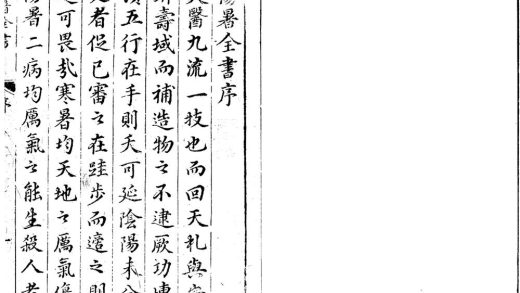 陽暑全書序
醫九流一技也而回天札與
壽域而補造物之不逮厥功
五行在手則夭可延陰陽未
者促已審之在跬步而遠之則
可畏哉寒暑均天地之厲氣傷
暑二病均厲氣之能生殺人者